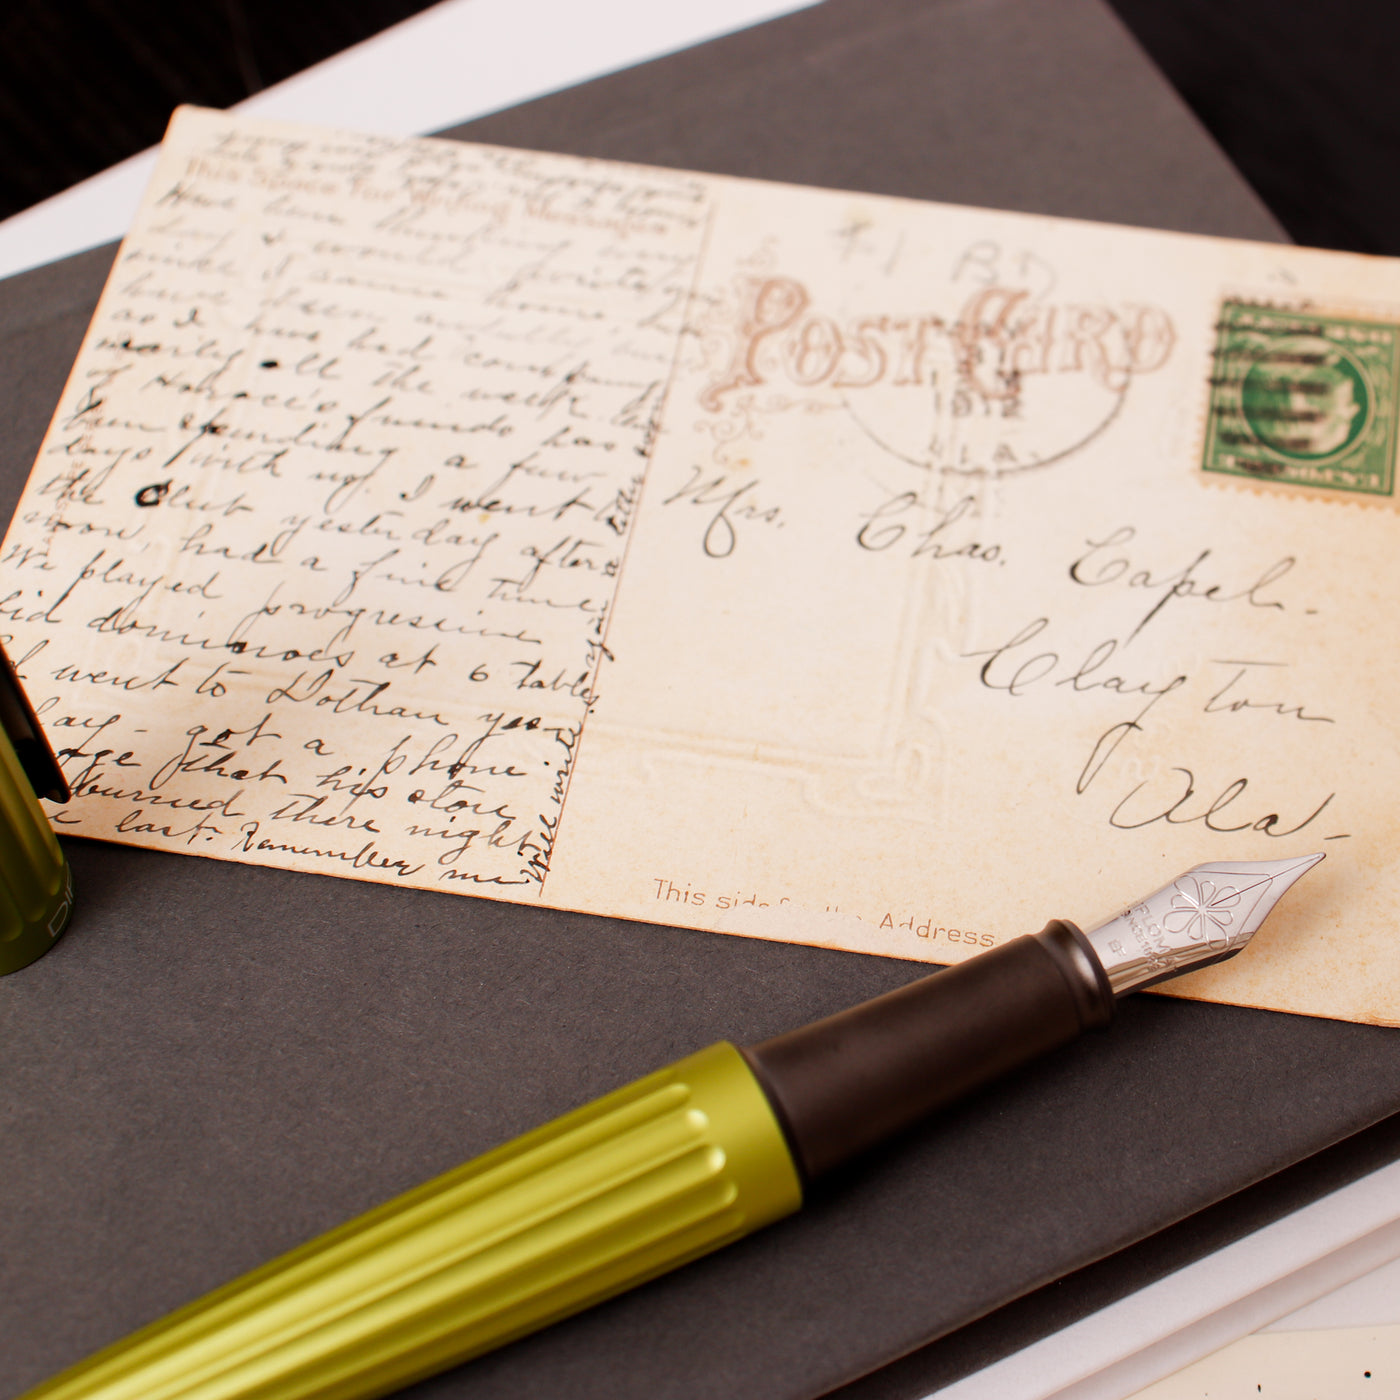 This Space for Writing Messages
Have been thinking every
day I would write you
since I came home, but
have been
as I have had company
nearly all the week. One
of Horace's friends has
been spending a few
days with us. I went to
the Club yesterday after
noon, had a fine time.
We played progressive
bid dominoes at 6 tables.
went to Dothan yes-
day - got a phone
that his store
burned there night
last. Remember me
Will write you a letter
#1 RD
POST CARD
1912
ALA.
Mrs. Chas. Capel.
Clayton
Ala.
This side for the Address
DIPLOMAT
SINCE 1922
EF
DI